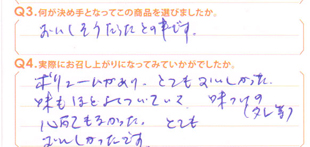 Q3.何が決め手となってこの商品を選びましたか。
おいしそうだったとの事です。
Q4.実際にお召し上がりになってみていかがでしたか。
ボリュームがあり、とてもおいしかった。
味もほどよくついていて 味つけの
(タレ等)
心配もなかった。とても
おいしかったです。